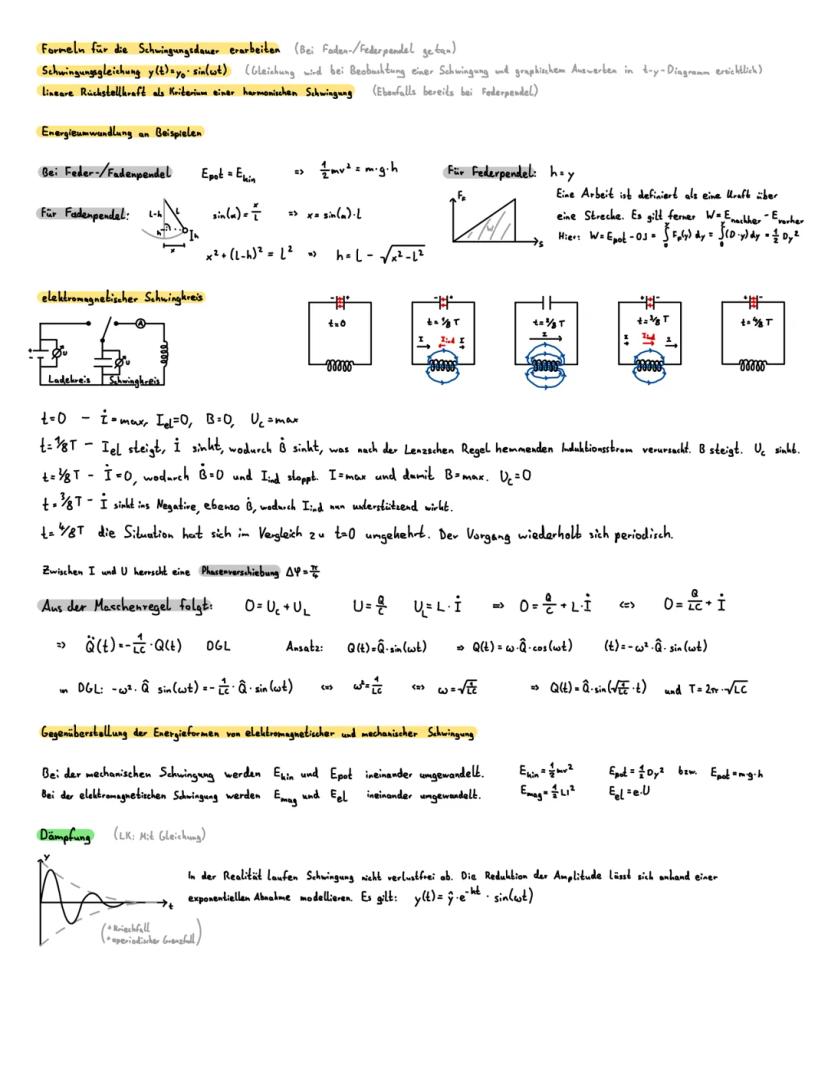 Formeln für die Schwingungsdauer erarbeiten (Bei Faden-/Federpendel getan)
Schwingungsgleichung y(t)=y₀· sin(ωt) (Gleichung wird bei Beobachtung einer Schwingung und graphischem Auswerten in t-y-Diagramm ersichtlich)
lineare Rückstellkraft als Kriterium einer harmonischen Schwingung (Ebenfalls bereits bei Federpendel)
Energieumwandlung an Beispielen
Bei Feder-/Fadenpendel E_pot = E_kin => ½mv² = m·g·h Für Federpendel: h=y
Für Fadenpendel: L-h L h x I h sin(α) = x/L => x = sin(α)·L
x² + (L-h)² = L² => h = L - √(x²-L²)
F_F W s
Eine Arbeit ist definiert als eine Kraft über
eine Strecke. Es gilt ferner W=E_nachher - E_vorher
Hier: W=E_pot - 0J = ∫₀^y F_F(y) dy = ∫₀^y (D·y) dy = ½ Dy²
elektromagnetischer Schwingkreis
- + t=0
- + t=1/8 T I I_ind I
t=2/8 T I
- + t=3/8 T I I_ind I
- + t=4/8 T
+ - U A U
Ladekreis Schwingkreis
t=0 - İ=max, I_el=0, B=0, U_c=max
t=1/8T - I_el steigt, İ sinkt, wodurch Ḃ sinkt, was nach der Lenzschen Regel hemmenden Induktionsstrom verursacht. B steigt. U_c sinkt.
t=2/8T - İ=0, wodurch Ḃ=0 und I_ind stoppt. I=max und damit B=max. U_c=0
t=3/8T - İ sinkt ins Negative, ebenso Ḃ, wodurch I_ind nun unterstützend wirkt.
t=4/8T die Situation hat sich im Vergleich zu t=0 umgekehrt. Der Vorgang wiederholt sich periodisch.
Zwischen I und U herrscht eine Phasenverschiebung Δφ=
Aus der Maschenregel folgt: 0=U_c+U_L U=Q/C U_L=L·İ => 0=Q/C + L·İ <=> 0=Q/LC + İ
=> Q̈(t)=-1/LC ·Q(t) DGL Ansatz: Q(t)=Q̂·sin(ωt) => Q(t)=ω·Q̂·cos(ωt) (t)=-ω²·Q̂·sin(ωt)
in DGL: -ω²·Q̂ sin(ωt)=-1/LC·Q̂·sin(ωt) <=> ω²=1/LC <=> ω=√(1/LC) => Q(t)=Q̂·sin(√(1/LC)·t) und T=2π·√LC
Gegenüberstellung der Energieformen von elektromagnetischer und mechanischer Schwingung
Bei der mechanischen Schwingung werden E_kin und E_pot ineinander umgewandelt. E_kin=½mv² E_pot=½Dy² bzw. E_pot=m·g·h
Bei der elektromagnetischen Schwingung werden E_mag und E_el ineinander umgewandelt. E_mag=½LI² E_el=e·U
Dämpfung (LK: Mit Gleichung)
y t
In der Realität laufen Schwingung nicht verlustfrei ab. Die Reduktion der Amplitude lässt sich anhand einer
exponentiellen Abnahme modellieren. Es gilt: y(t)=ŷ·e^-kt · sin(ωt)
(+Kriechfall
+aperiodischer Grenzfall)